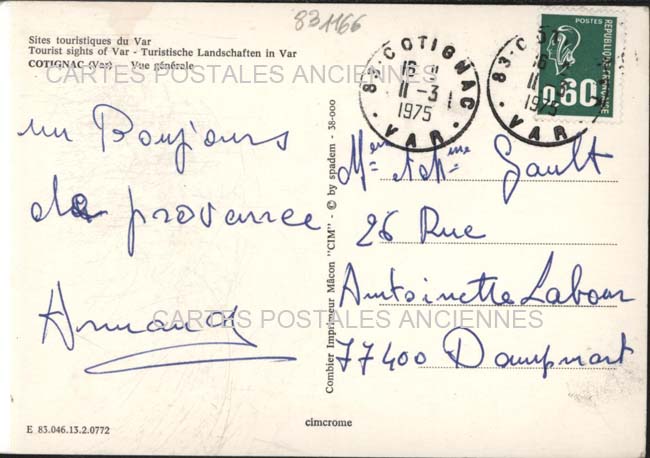 831166
Sites touristiques du Var
Tourist sights of Var - Turistische Landschaften in Var
COTIGNAC (Var) - Vue générale
CARTES POSTALES ANCIENNES
un Bonjours
de provence
Armand
E 83.046.13.2.0772
Combier Imprimeur Mâcon "CIM" - © by spadem - 38-000
cimcrome
83-COTIGNAC
16 H
11-3
1975
VAR
83-COT
16 H
11-3
1975
VAR
REPUBLIQUE FRANCAISE
0,60
Mr et Mme Gault
26 Rue
Antoinette Labour
77400 Dampmart
CARTES POSTALES ANCIENNES